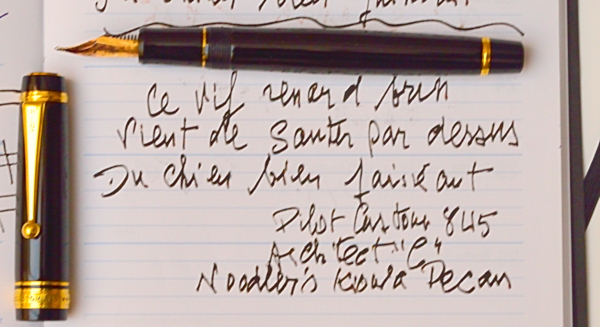 Ce vif renard brun
vient de sauter par dessus
Du chien bien faisant
Pilot Custom 845
Architect "C"
Noodler's Kiowa Pecan